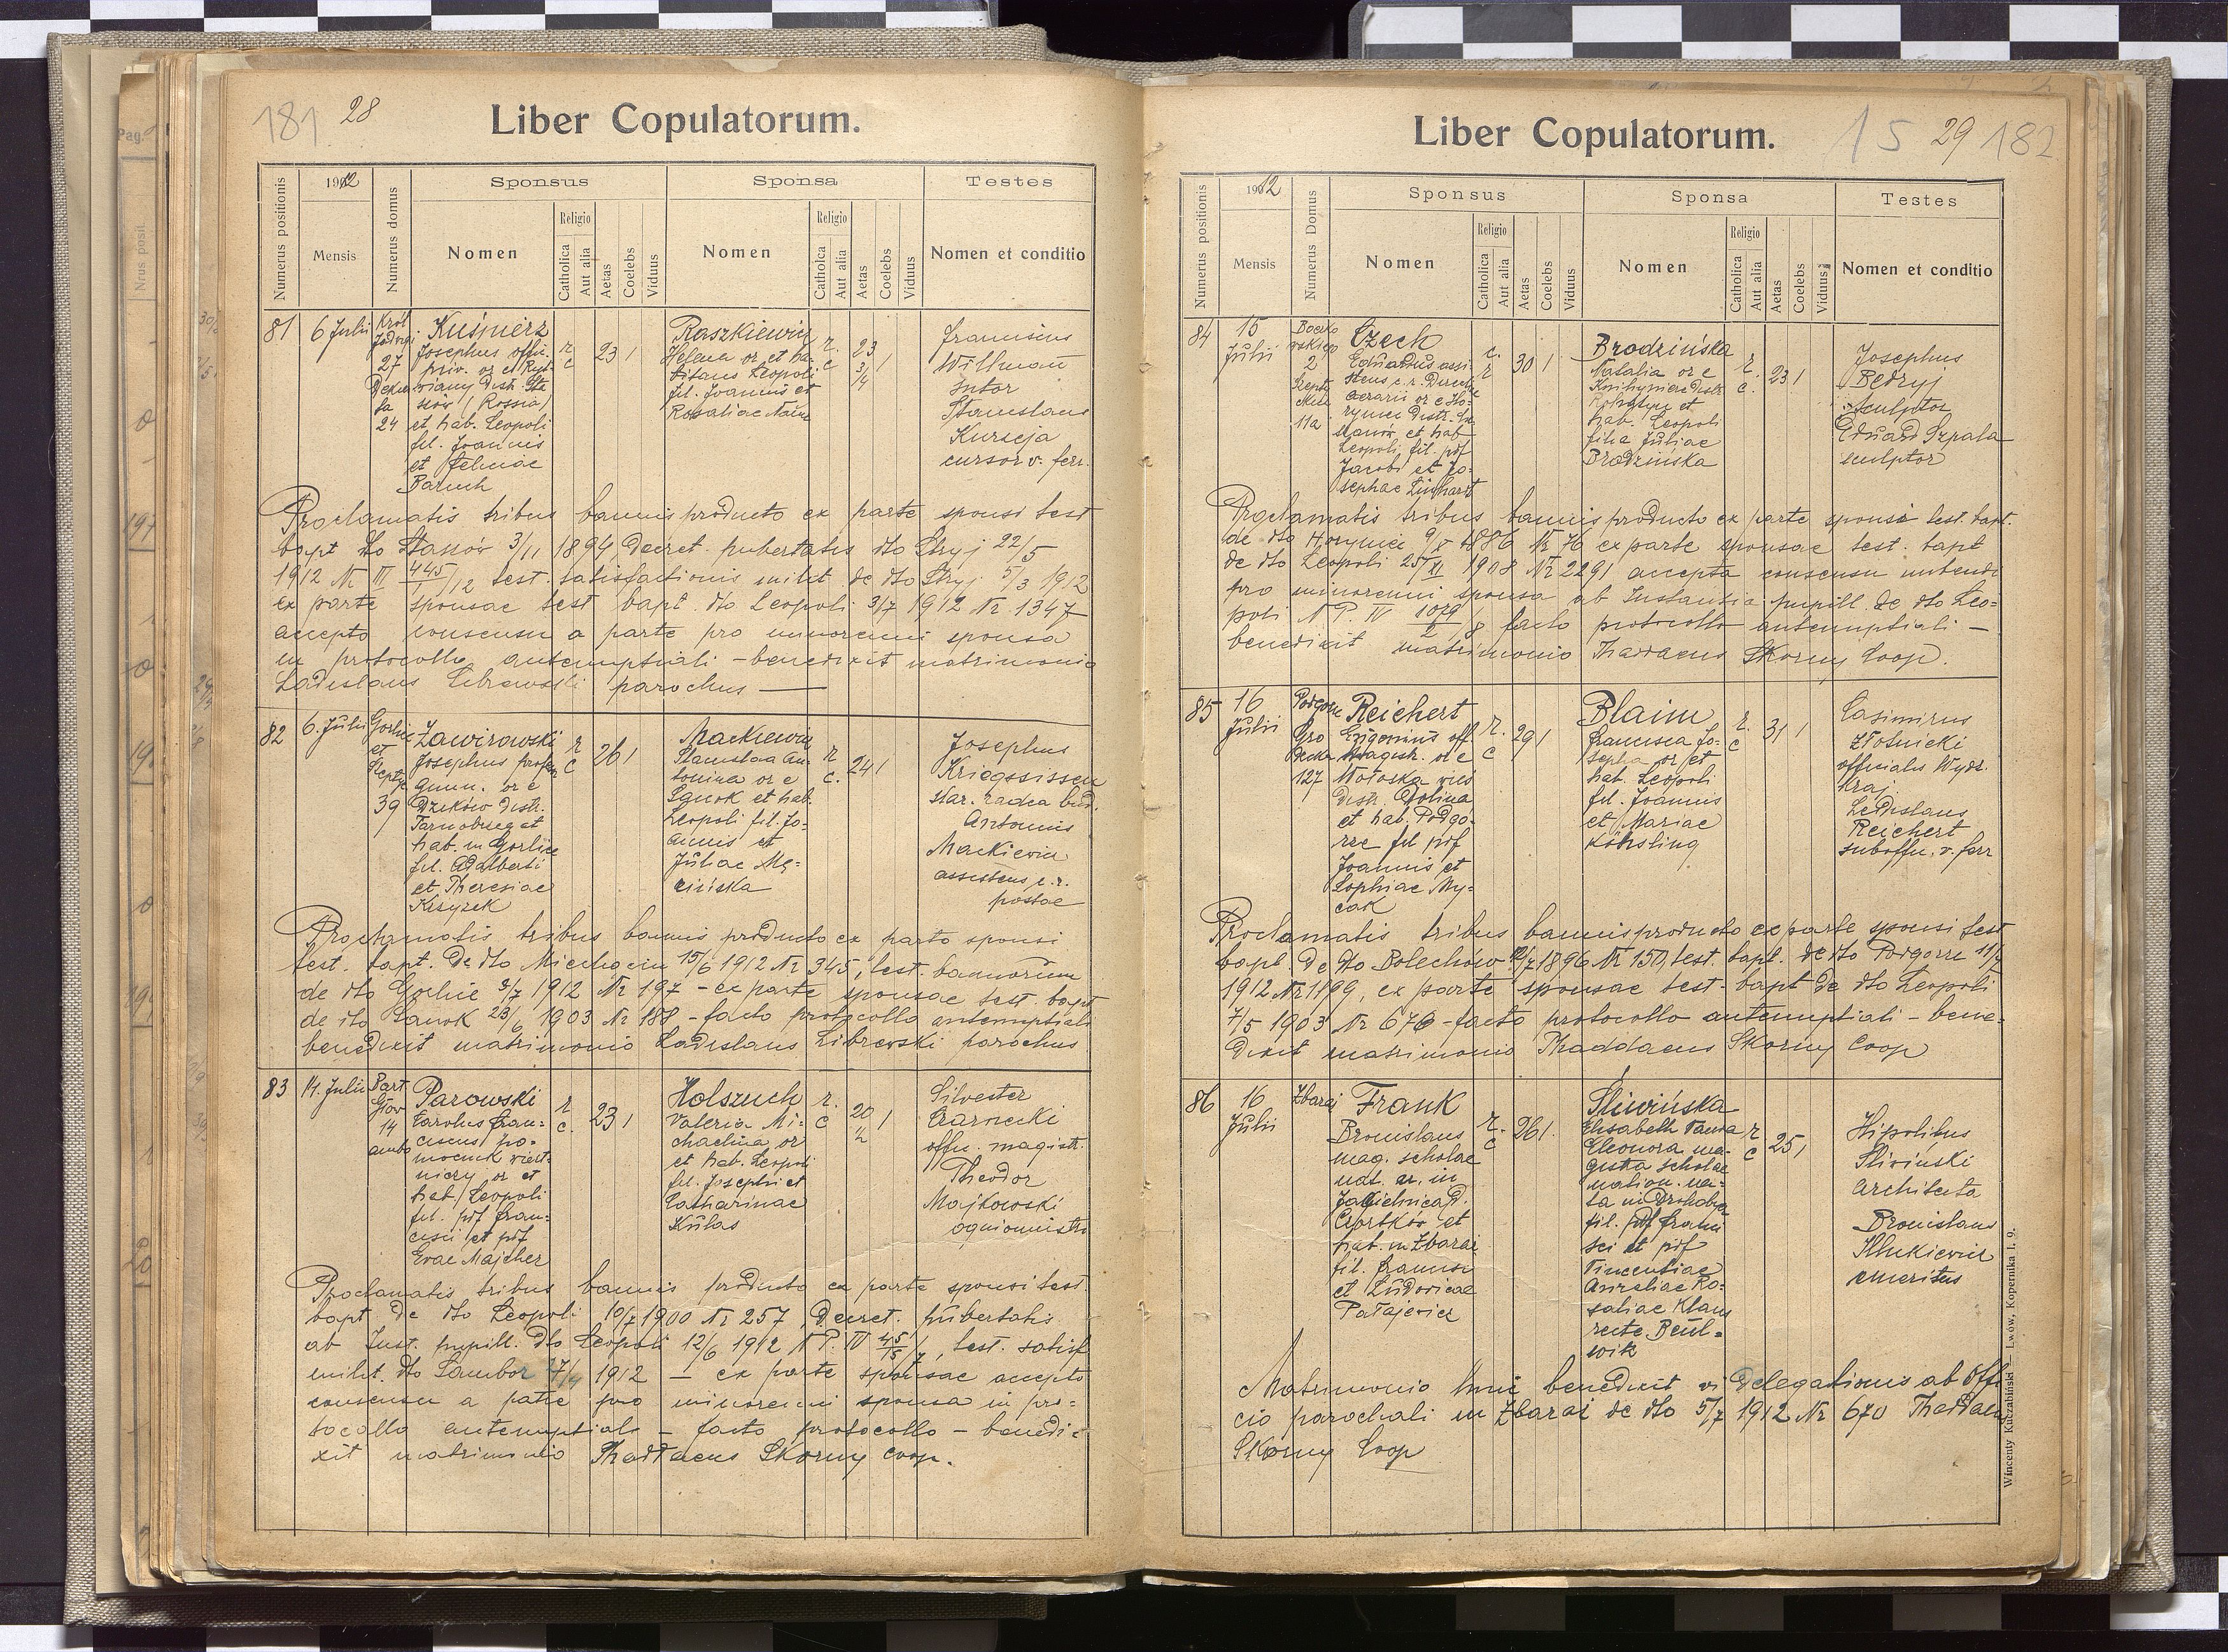 181 28
Liber Copulatorum.
Numerus positionis
1912
Mensis
Numerus domus
Sponsus
Nomen
Religio
Catholica
Aut alia
Aetas
Coelebs
Viduus
Sponsa
Nomen
Religio
Catholica
Aut alia
Aetas
Coelebs
Viduus
Testes
Nomen et conditio
81
6 Julii
Król
Jadwigi
27
24
Kuśnierz
Josephus offic.
priv. or e
(Rossia)
et hab. Leopoli
fil. Joannis
et
Baruch
r.
c
23
1
Raszkiewicz
Helena or et ha-
bitans Leopoli
fil. Joannis et
Rosaliae
r.
c
23
3/4
1
Franciscus
Willman
sutor
Stanislaus
Kurscja
cursor v. ferr.
Proclamatis tribus bannis producto ex parte sponsi test
bapt dto 3/11 1894 Decret. pubertatis dto Stryj 22/5
1912 Nr III 445/12 test. satisfactionis milit de dto Stryj 5/3 1912
ex parte sponsae test bapt. dto Leopoli 3/7 1912 Nr. 1347
accepto consensu a parte pro minorenni sponsa
in protocollo antenuptiali – benedixit matrimonio
Ladislaus Librewski parochus —
82
6. Julii
Gorlice
et
39
Zawirowski
Josephus profes.
gimn. or e
Dzików Distr.
Tarnobrzeg et
hab. in Gorlice
fil. Adalberti
et Theresiae
Krzyzek
r
c
26
1
Mackiewicz
Stanislava An-
tonina or e
Sanok et hab.
Leopoli fil. Jo-
annis et
Juliae Mę-
cińska
r
c.
24
1
Josephus
Kriegseissen
star. radca bud.
Antonius
Mackiewicz
assistens c. r.
postae
Proclamatis tribus bannis producto ex parte sponsi
test. bapt. de dto Miechocin 15/6 1912 Nr 345, test. bannorum
de dto Gorlice 3/7 1912 Nr 197 – ex parte sponsae test. bapt
de dto Sanok 23/6 1903 Nr 188 – facto protocollo antenuptiali
benedixit matrimonio Ladislaus Librewski parochus
83
14. Julii
Bart
Głow
14
ambo
Parowski
Carolus Fran-
ciscus po-
mocnik wiert-
niczy or et
hab. Leopoli
fil. pdf Fran-
cisci et pdf
Evae Majcher
r
c.
23
1
Holszuch
Valeria Mi-
chaelina or
et hab. Leopoli
fil. Josephi et
Catharinae
Kulas
r.
c
20
1/2
1
Silvester
Czarnecki
offic. magistr.
Theodor
Majkowski
ogniomistrz
Proclamatis tribus bannis producto ex parte sponsi test.
bapt de dto Leopoli 10/7 1900 Nr 257, Decret. pubertatis
ab Inst. pupill. dto Leopoli 12/6 1912 N P. IV 45/5/7, test. satisf
milit. dto Sambor 1912 – ex parte sponsae accepto
consensu a patre pro minorenni sponsa in pro-
tocollo antenuptiali – facto protocollo – benedi-
xit matrimonio Thaddaeus Skorny coop.
15 29 182
Liber Copulatorum.
Numerus positionis
1912
Mensis
Numerus Domus
Sponsus
Nomen
Religio
Catholica
Aut alia
Aetas
Coelebs
Viduus
Sponsa
Nomen
Religio
Catholica
Aut alia
Aetas
Coelebs
Viduus
Testes
Nomen et conditio
84
15
Julii
2
11a
Czech
Eduardus assi
stens c. r. Direct
aerarii or e Ho-
rynice Distr.
et hab
Leopoli, fil. pdf
Jacobi et Jo-
sephae Linhart
r.
30
1
Brodzińska
Natalia or e
Knihynicze Distr
Rohatyn et
hab. Leopoli
filia Juliae
Brodzińska
r.
c.
23
1
Josephus
Bedryj
sculptor
Eduard Szpala
sculptor
Proclamatis tribus bannis producto ex parte sponsi test. bapt.
de dto Horynice 9/X 1886 Nr 76 ex parte sponsae test. bapt
de dto Leopoli 25/XI 1908 Nr 2291 accepta consensu nubendi
pro minorenni sponsa ab Instantia pupill. de dto Leo-
poli N P. IV facto protocollo antenuptiali –
benedixit matrimonio Thaddaeus Skorny Coop.
85
16
Julii
Podgorze
Gro
decka
127
Reichert
Eugenius off
magistr. or e
Wołoska wies
Distr. Dolina
et hab. Podgo-
rze fil pdf
Joannis et
Sophiae My-
cak
r.
c
29
1
Blaim
Francisca Jo-
sepha or et
hab. Leopoli
fil. Joannis
et Mariae
Köhsling
r.
c
31
1
Casimirus
Złotnicki
officialis Wydz.
Kraj
Ladislaus
Reichert
suboffic. v. ferr
Proclamatis tribus bannis producto ex parte sponsi test
bapt. de dto Bolechów 1896 Nr 150, test. bapt. de dto Podgorze 11/7
1912 Nr 1899, ex parte sponsae test. bapt de dto Leopoli
7/5 1903 Nr 676 – facto protocollo antenuptiali – bene-
dixit matrimonio Thaddaeus Skorny Coop
86
16
Julii
Zbaraż
Frank
Bronislaus
mag. scholae
nat. in
Jagielnica D.
Czortków et
hab. in Zbaraż
fil. Francisci
et Ludovicae
Patajewicz
r.
c
26
1
Śliwińska
Elisabeth
Eleonora ma-
gistra scholae
nation. na-
ta in Drohobycz
fil. pdf Franci
sci et pdf
Vincentiae
Aureliae Ro-
saliae Klam
recte Beul-
wik
r
c
25
1
Hipolitus
Śliwiński
architecta
Bronislaus
emeritus
Matrimonio huic benedixit vi Delegationis ab Offi
cio parochali in Zbaraż de dto 5/7 1912 Nr 670 Thaddaeus
Skorny Coop
Wincenty Kuczabiński — Lwów, Kopernika l. 9.